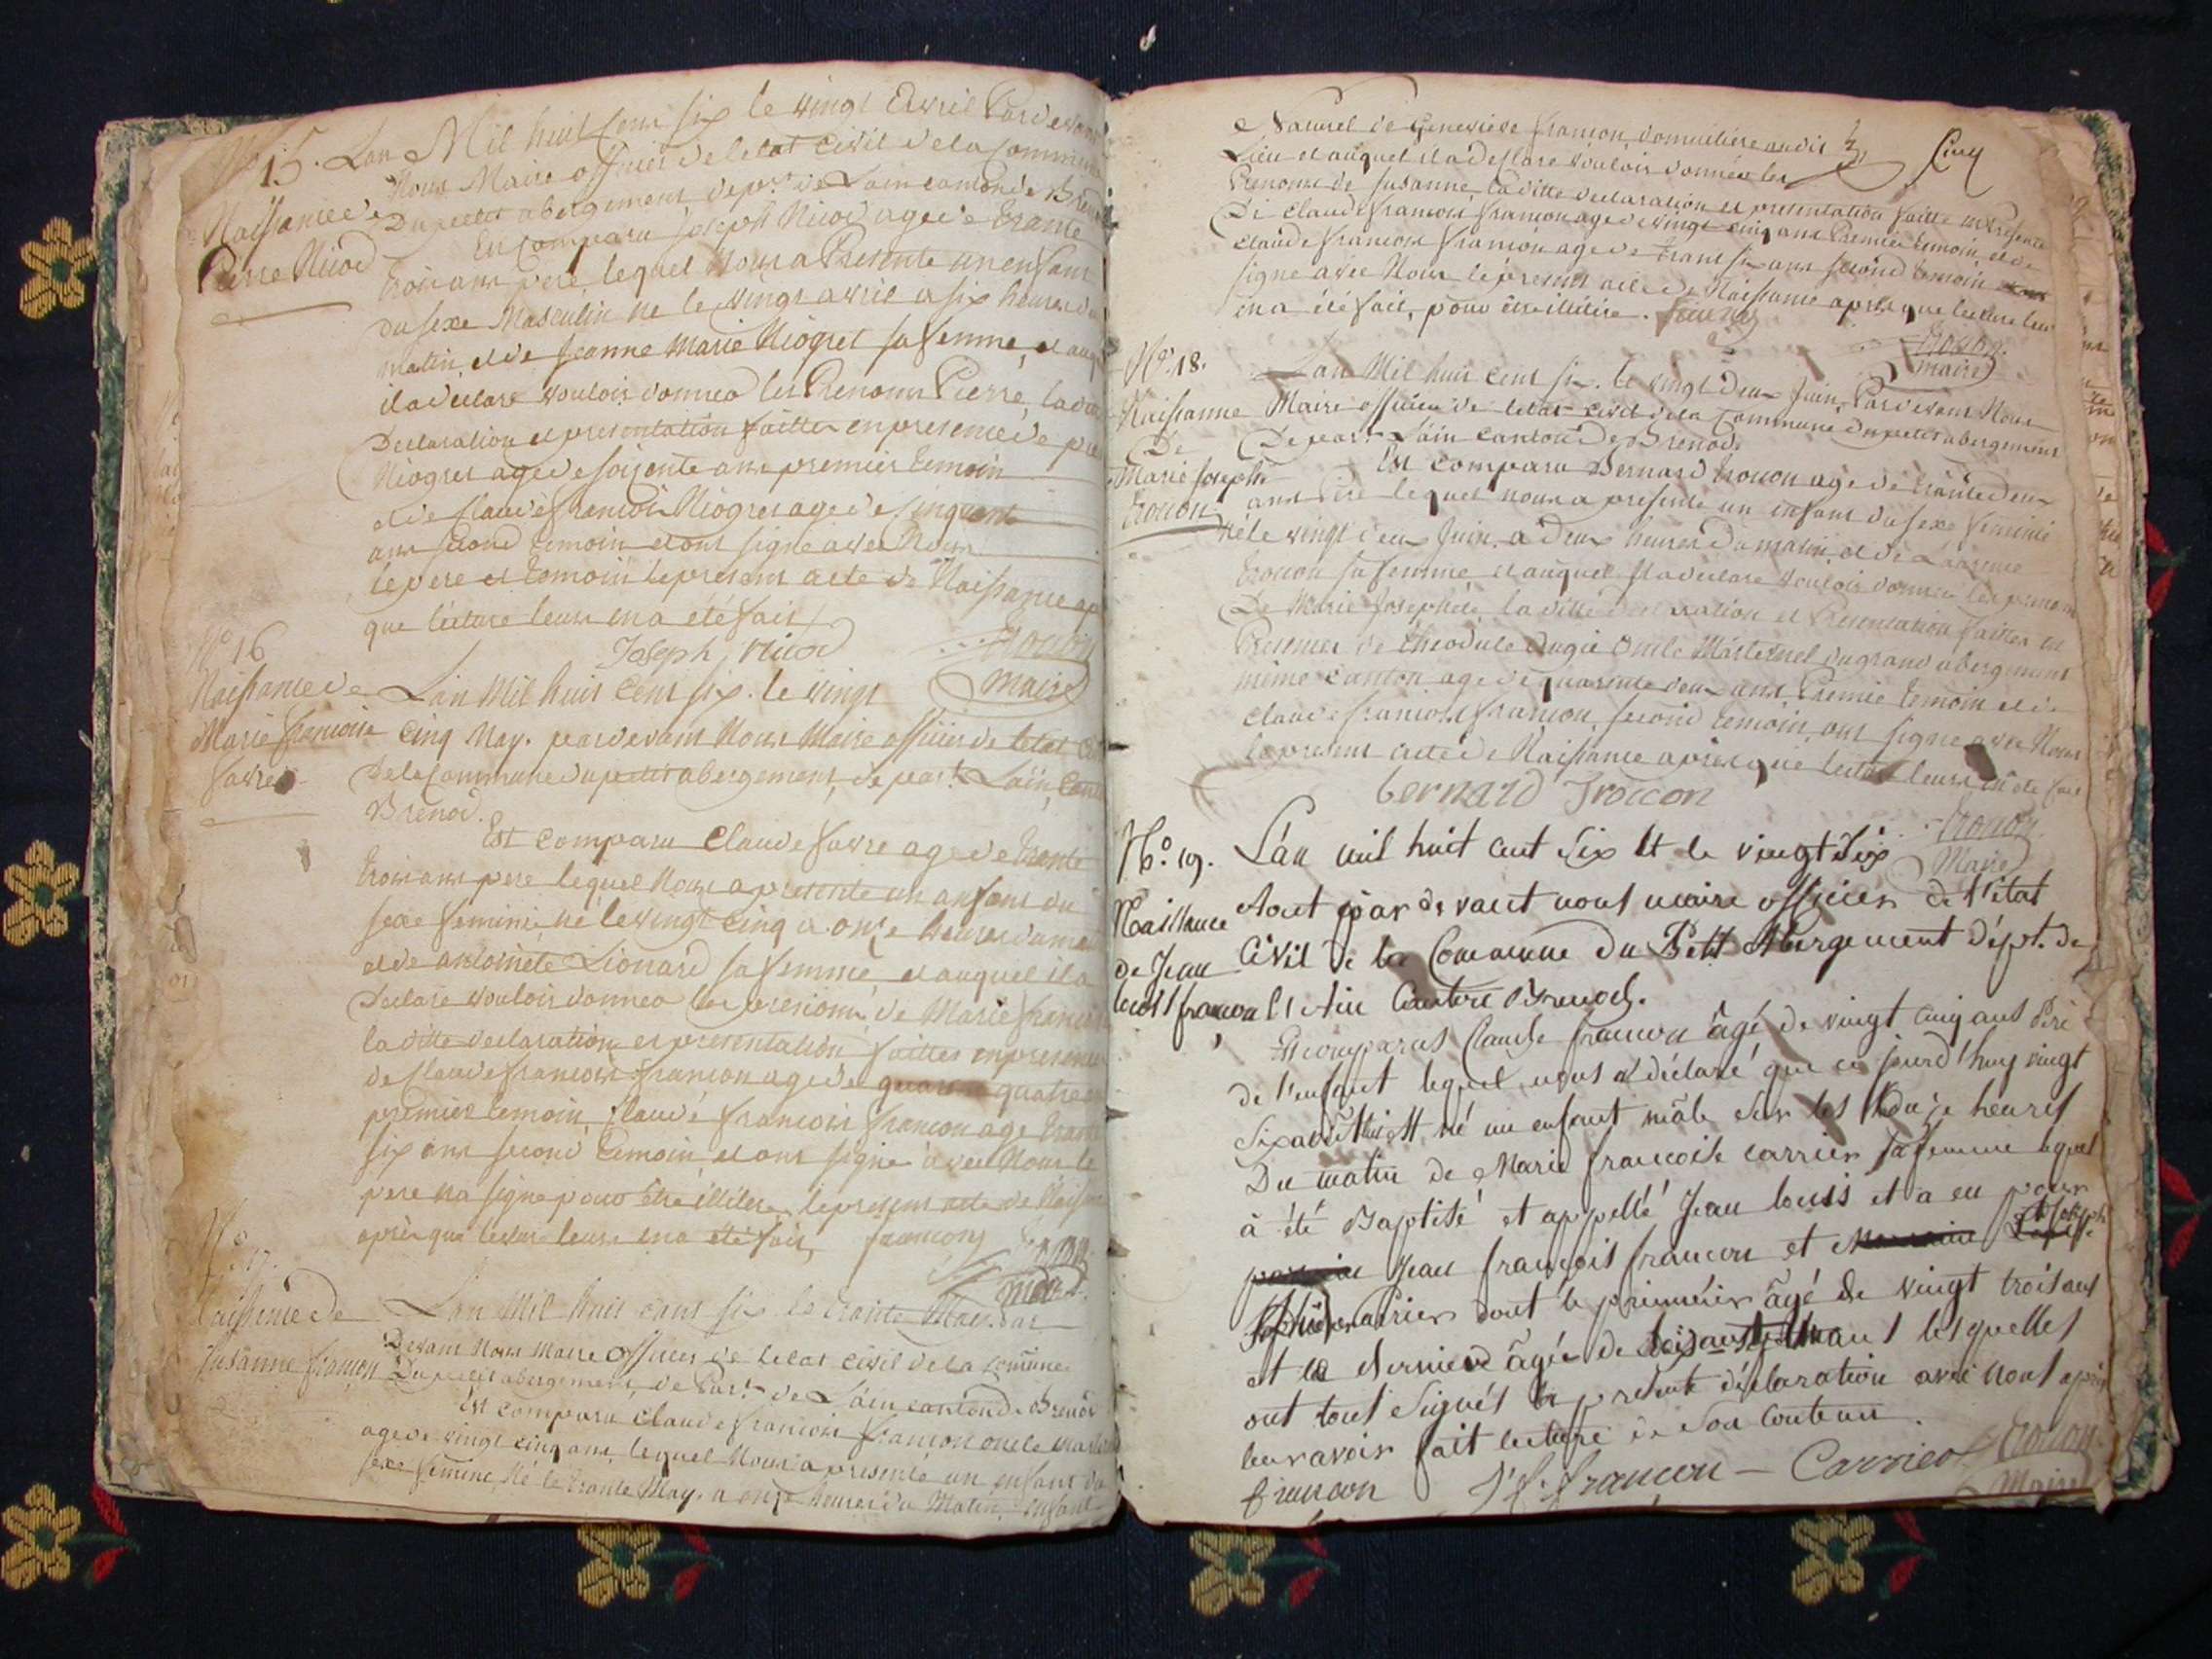 N° 15.
Naissance de
Pierre Nicod
Lan Mil huit Cens six le vingt Avril Pardevant
Nous Maire officier de letat Civil de la Commune
Du petit abergement depart. de Lain canton de Brenod
Est Comparu joseph Nicod age de trante
trois ans pere lequel Nous a Presente un enfant
du sexe Masculin ne le vingt avril a six heures du
matin, et de Jeanne Marie Niogret sa femme, et auquel
il a declare vouloir donner les Prenoms Pierre, la ditte
Declaration et presentation faittes en presence de
Niogret age de soisente ans premier temoin
et de Claude francois Niogret age de cinquante
ans second temoin et ont signe avec Nous
le pere et temoin le present acte de Naissance apres
que lecture leurs en a été fait
Joseph Nicod
Trocon
Maire
N° 16
Naissance de
Marie francoise
favre
Lan Mil huit Cens six. le vingt
Cinq May. pardevant Nous Maire officier de letat
De la Commune du petit abergement, depart. Lain, Canton
Brenod.
Est Comparu Claude favre age de trente
trois ans pere lequel Nous a presente un anfant du
sexe feminin né le vingt cinq a onze heures du matin
et de antoinete Lionard sa femme, et auquel il a
Declare vouloir donner les prenoms de Marie francoise
la ditte declaration et presentation faittes en presence
de Claude francois francon age de quarante quatre
premier temoin, Claude francois francon age trante
six ans second temoin, et ont signe avec Nous le
pere na signe pour être illitere, le present acte de Naissance
après que lecture leurs en a été fait, francon
Trocon
Maire
N° 17.
Naissance de
Susanne francon
Lan Mil huit cens six le trante May. Par
Devant Nous Maire officier de letat civil de la comune
Du petit abergement, de Part. de Lain canton de Brenod
Est comparu Claude francois francon oncle
age de vingt cinq ans, lequel Nous a presenté un enfant du
sexe feminin, Né le trante May. a onze heures du Matin, enfant
Cinq
Naturel de Genevieve francon, domiciliere audit
Lieu et auquel il a declare vouloir donner les
Prenoms de Susanne, la ditte declaration et presentation faitte en Presence
De Claude francois francon age de vingt cinq ans Premier temoin, et de
Claude francois francon age de trant six ans second temoin
signe avec Nous le present acte de Naissance apres que lecture leur
en a été fait, pour être illitere.
Trocon
maire
N° 18.
Naissanne
De
Marie Josephe
trocon
Lan Mil huit cens six. le vingt deux Juin, Pardevant Nous
Maire officier de letat civil de la Commune du petit abergement
Depart. Lain canton de Brenod.
Est comparu Bernard trocon age de trante deux
ans Pere lequel nous a presente un enfant du sexe feminin
né le vingt deux Juin, a deux heures du matin, et de
trocon sa femme, et auquel il a declare vouloir donner les prenoms
De Marie Josephete, la ditte declaration et Presentation faittes en
Presence de Theodule augie oncle Maternel du grand abergement
même canton age de quarante deux ans, Premie temoin et de
Claude francois francon, second temoin, ont signe avec Nous
le present acte de Naissance apres que lecture leurs en été fait
bernard Troccon
Trocon
Maire
N°. 19.
Naissance
de Jean
louis francon
L'an mil huit cent six et le vingt six
Aout par devant nous maire officier de l'état
Civil de la Commune du Petit Abergement dépt. de
l'Ain Canton Brenod.
Est comparus Claude francon âgé de vingt cinq ans Père
de l'enfant lequel nous a déclaré que ce jourd'huy vingt
six est né un enfant mâle sur les heures
Du matin de Marie francoise carrier sa femme lequel
à été Baptisé et appellé Jean louis et a eu pour
Jean françois francon et
carrier dont le premier âgé de vingt trois ans
et la derniere âgée de ans lesquelles
ont tous signés la présente déclaration avec nous après
leur avoir fait lecture de son contenu.
francon J. f. francon - Carrier Trocon
Maire